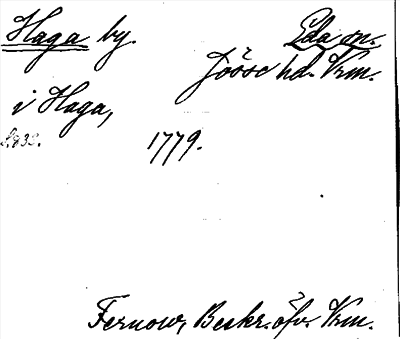 Haga by. Eda sn.
Jösse hd. Vrm.
i Haga,
1779.
Fernow, Beskr. öfv. Vrm.